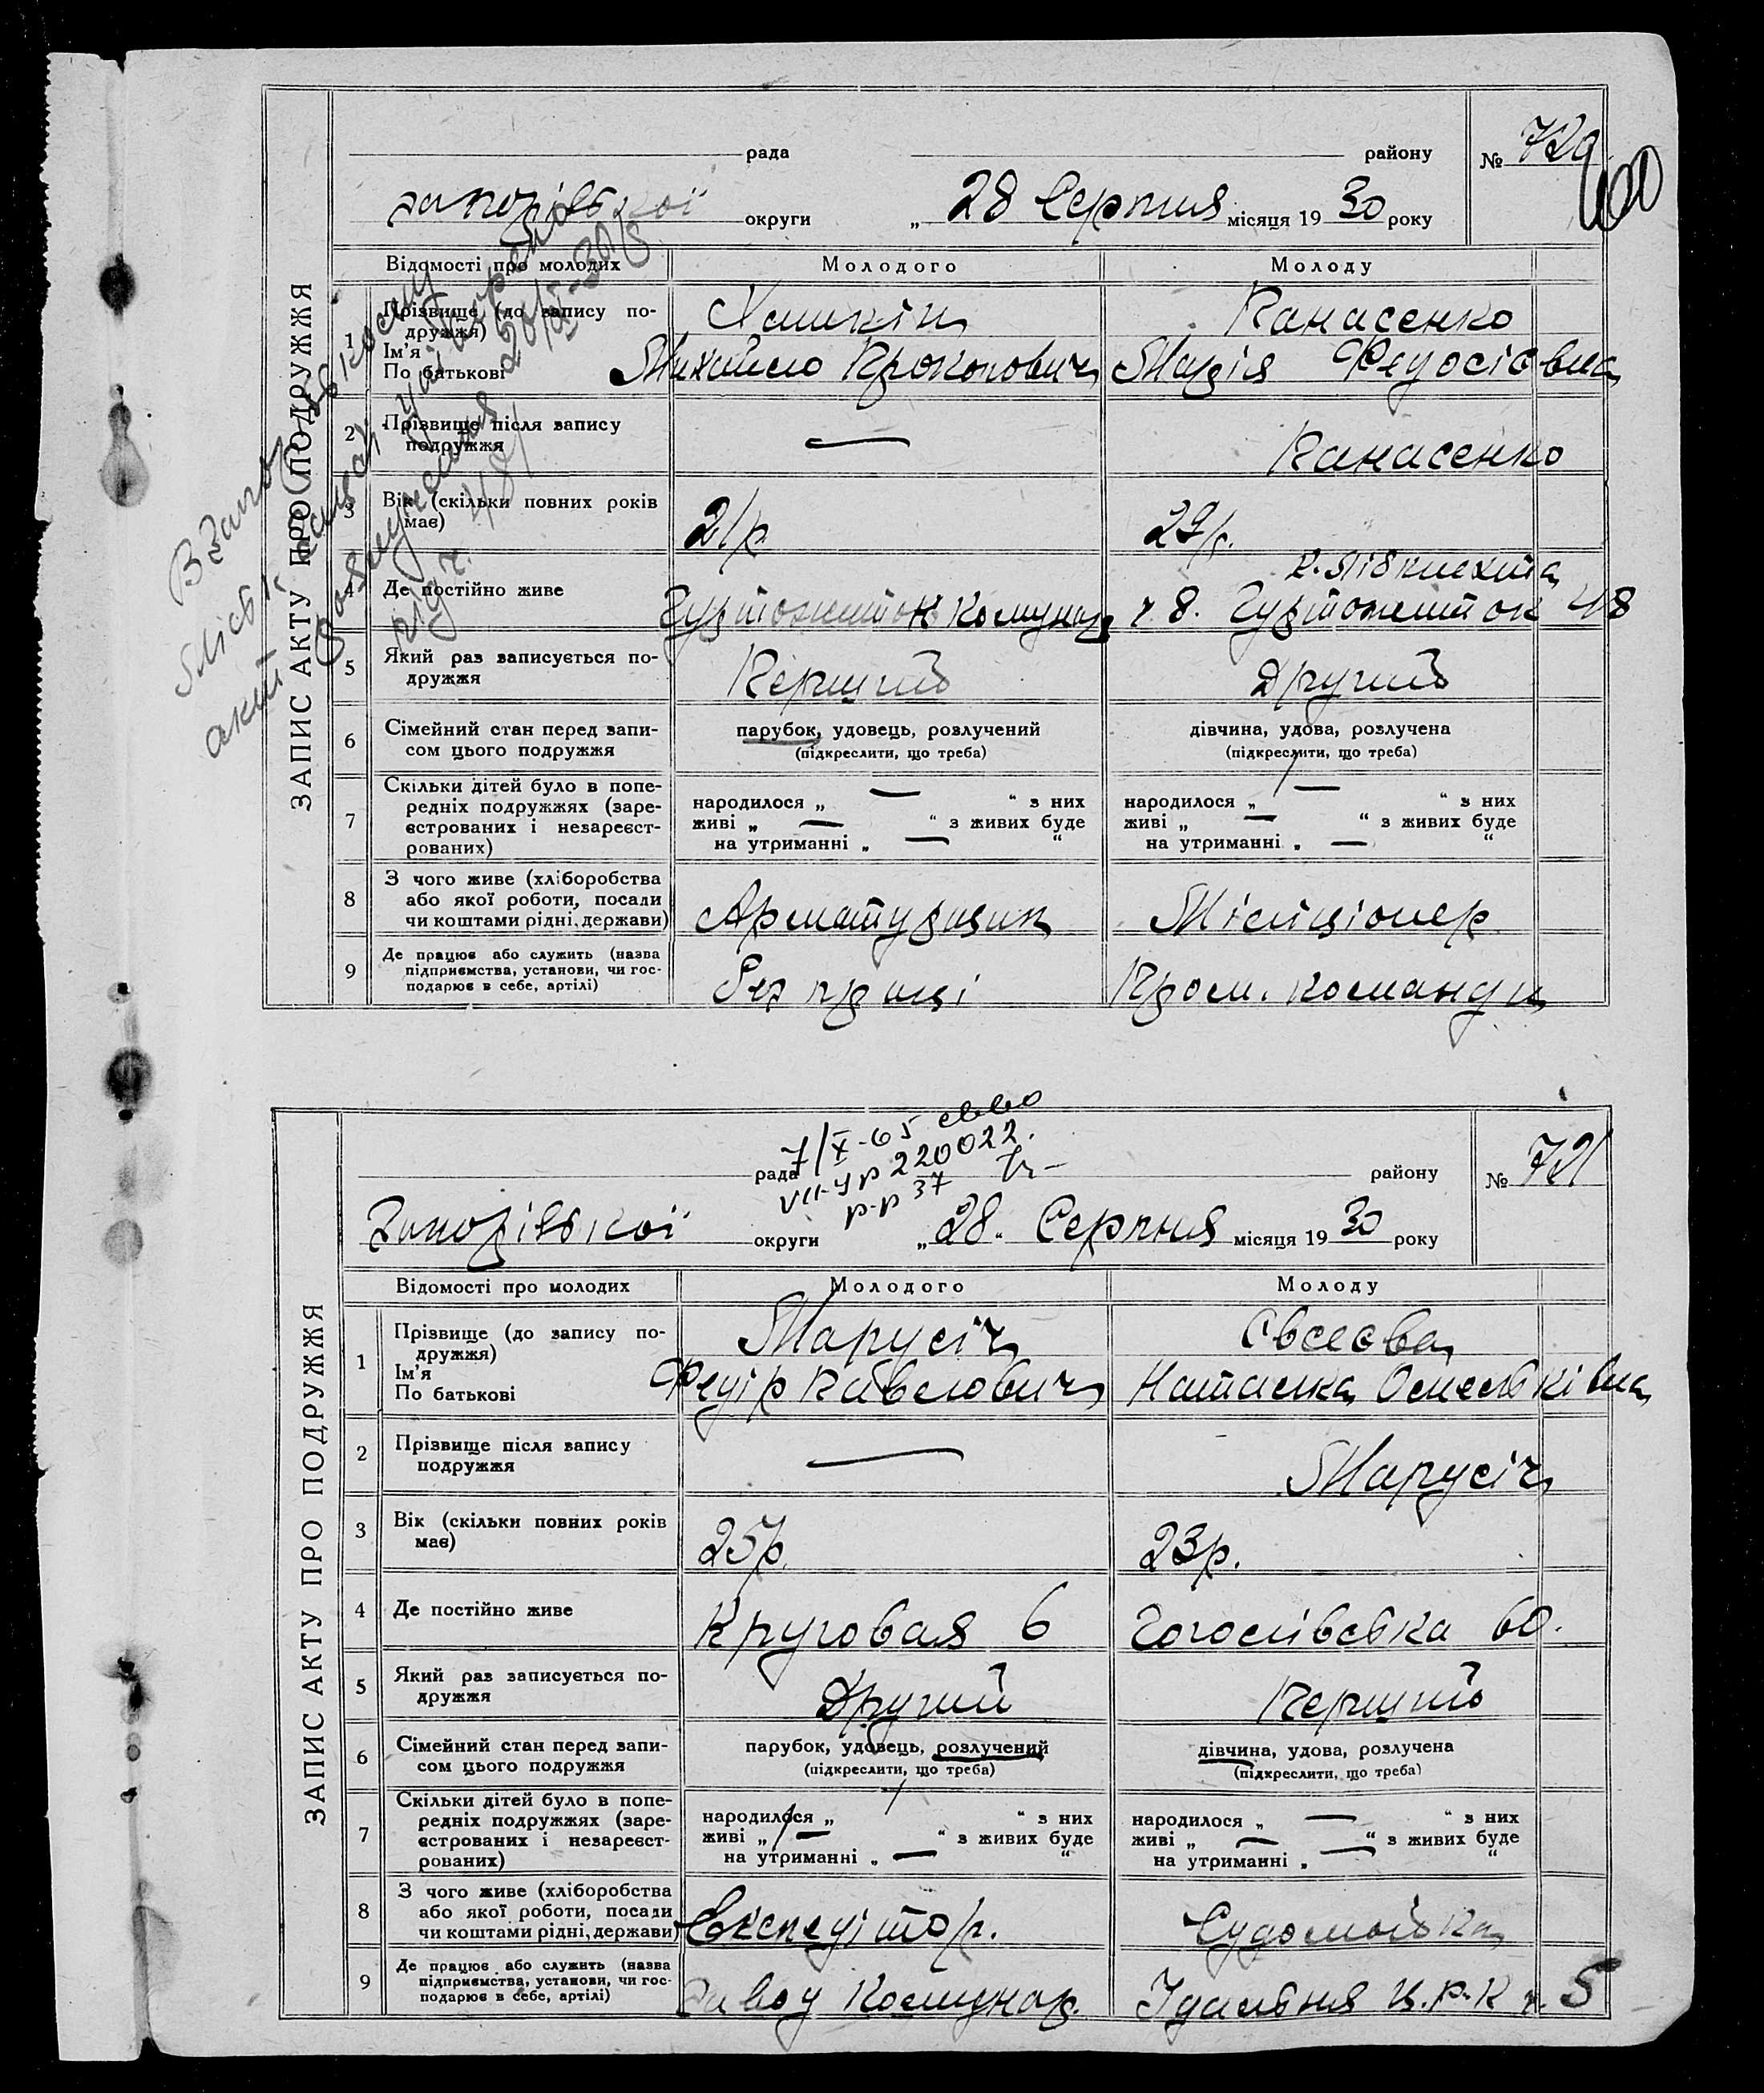 ЗАПИС АКТУ ПРО ПОДРУЖЖЯ
рада району № 720
600
запорізької округи „ 28 Серпня місяця 19 30 року
Відомості про молодих Молодого Молоду
1 Прізвище (до запису подружжя) Ханасенко
Ім'я
По батькові Михайло Прокопович Марія Федосіевна
2 Прізвище після запису подружжя — Панасенко
3 Вік (скільки повних років має) 21р. 29р.
4 Де постійно живе Гуртожиток Комунар ч. 8. К. Лібкнехта Гуртожиток 48
5 Який раз записується подружжя Перший Другий
6 Сімейний стан перед записом цього подружжя парубок, удовець, розлучений дівчина, удова, розлучена
(підкреслити, що треба) (підкреслити, що треба)
7 Скільки дітей було в попередніх подружжях (зареєстрованих і незареєстрованих)
народилося „ — “ з них народилося „ — “ з них
живі „ — “ з живих буде живі „ — “ з живих буде
на утриманні „ — “ на утриманні „ — “
8 З чого живе (хліборобства або якої роботи, посади чи коштами рідні, держави) Арматурщик Міліціонер
9 Де працює або служить (назва підприємства, установи, чи господарює в себе, артілі) Без праці Пром. команди
ЗАПИС АКТУ ПРО ПОДРУЖЖЯ
7/X-65 св-во
VII-УР 220022.
р-р 37
рада району № 721
Запорізької округи „ 28. Серпня місяця 19 30 року
Відомості про молодих Молодого Молоду
1 Прізвище (до запису подружжя) Марусіч Євсеєва
Ім'я
По батькові Федір Павелович Наталка Омельківна
2 Прізвище після запису подружжя — Марусіч
3 Вік (скільки повних років має) 25р. 23р.
4 Де постійно живе Круговая 6 Гоголівська 60.
5 Який раз записується подружжя Другий Перший
6 Сімейний стан перед записом цього подружжя парубок, удовець, розлучений дівчина, удова, розлучена
(підкреслити, що треба) (підкреслити, що треба)
7 Скільки дітей було в попередніх подружжях (зареєстрованих і незареєстрованих)
народилося „ “ з них народилося „ — “ з них
живі „ — “ з живих буде живі „ — “ з живих буде
на утриманні „ — “ на утриманні „ — “
8 З чого живе (хліборобства або якої роботи, посади чи коштами рідні, держави) Експедітор. Судомойка
9 Де працює або служить (назва підприємства, установи, чи господарює в себе, артілі) Завод Комунар Їдальня Ц.Р.К ч. 5